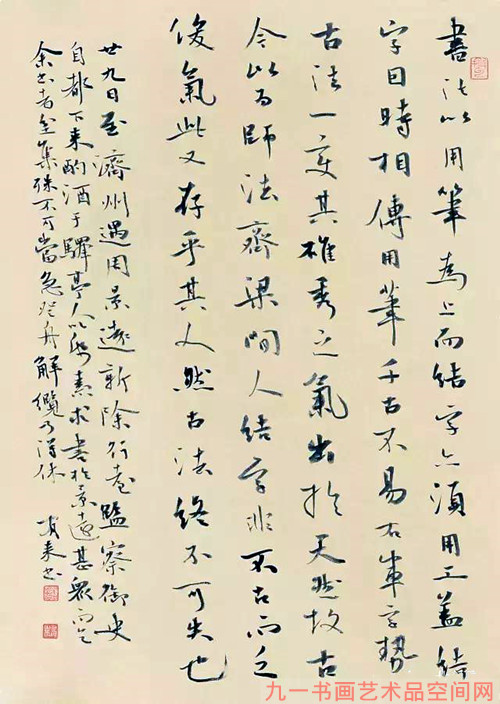 書法以用筆為上而結字亦須用工盖結
字因時相傳用筆千古不易右軍字勢
古法一變其雄秀之氣出於天然故古
今以為師法齊梁間人結字非不古而乏
俊氣此又存乎其人然古法終不可失也
廿九日至濟州遇周景遠新除行臺監察御史
自都下來酌酒于驛亭人以紙素求書於景遠甚眾而乞
余書者坌集殊不可當急登舟解纜乃得休
九一书画艺术品空间网